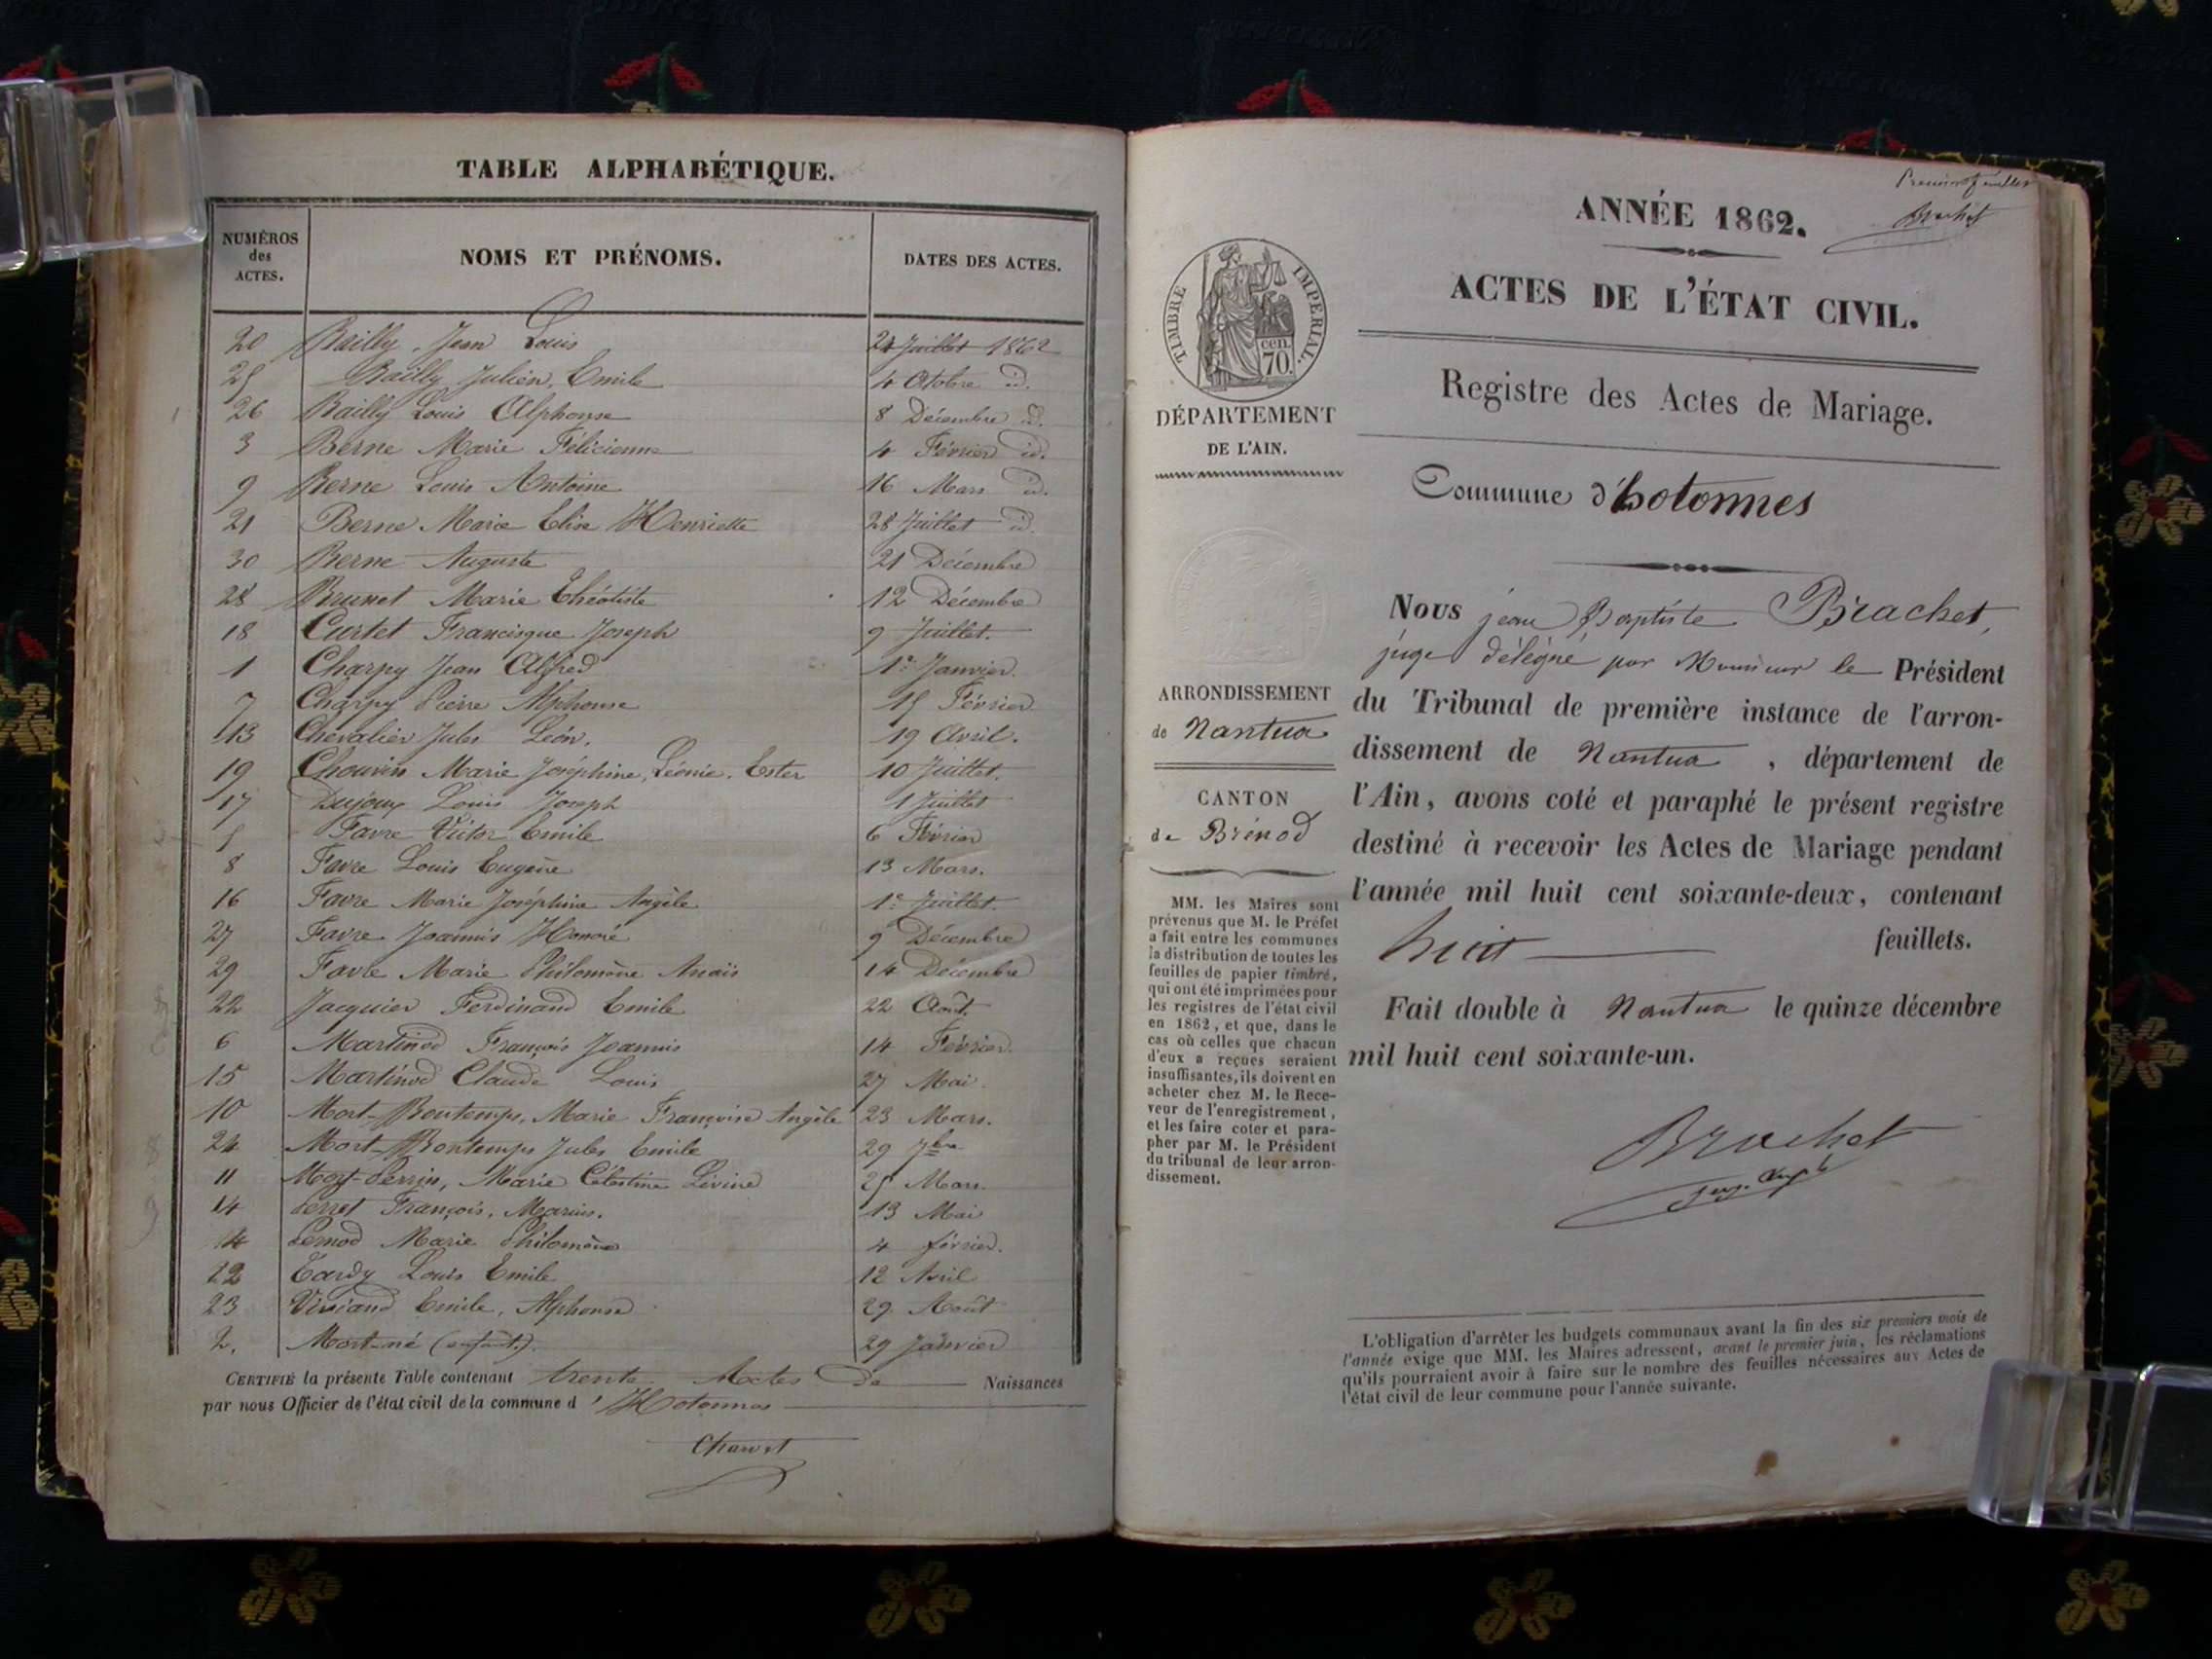 TABLE ALPHABÉTIQUE.
NUMÉROS des ACTES. NOMS ET PRÉNOMS. DATES DES ACTES.
20 Bailly, Jean Louis 24 Juillet 1862
25 Bailly Julien, Emile 4 Otobre id.
26 Bailly Louis Alphonse 8 Décembre id.
3 Berne Marie Félicienne 4 Février id.
9 Berne Louis Antoine 16 Mars id.
21 Berne Marie Elise Henriette 28 Juillet id.
30 Berne Auguste 21 Décembre
28 Brunet Marie Théotiste 12 Décembre
18 Curtet Francisque Joseph 9 Juillet.
1 Charpy Jean Alfred 1er Janvier.
7 Charpy Pierre Alphonse 15 Février
13 Chevalier Jules Léon. 19 Avril.
19 Chouvin Marie Joséphine, Léonie, Ester 10 Juillet.
17 Dujoux Louis Joseph 1 Juillet
5 Favre Victor Emile 6 Février
8 Favre Louis Eugène 13 Mars.
16 Favre Marie Joséphine Angèle 1er Juillet.
27 Favre Joannis Honoré 9 Décembre
29 Favre Marie Philomène Anaïs 14 Décembre
22 Jacquier Ferdinand Emile 22 Août.
6 Martinod François Joannis 14 Février.
15 Martinod Claude Louis 27 Mai.
10 Mort-Bontemps, Marie Françoise Angèle 23 Mars.
24 Mort-Bontemps Jules Emile 29 7bre
11 Mort-Perrin, Marie Célestine Lévine 25 Mars.
14 Perret François, Marius. 13 Mai
4 Pernod Marie Philomène 4 février.
12 Tardy Louis Emile 12 Avril
23 Viviand Emile, Alphonse 29 Août
2. Mort-né (enfant). 29 Janvier
CERTIFIÉ la présente Table contenant trente Actes de Naissances
par nous Officier de l'état civil de la commune d'Hotonnes
Premier feuillet
Brachet
ANNÉE 1862.
ACTES DE L'ÉTAT CIVIL.
Registre des Actes de Mariage.
Commune d'hotonnes
TIMBRE IMPÉRIAL.
70 cen.
DÉPARTEMENT
DE L'AIN.
ARRONDISSEMENT
de Nantua
CANTON
de Brénod
MM. les Maires sont
prévenus que M. le Préfet
a fait entre les communes
la distribution de toutes les
feuilles de papier timbré,
qui ont été imprimées pour
les registres de l'état civil
en 1862, et que, dans le
cas où celles que chacun
d'eux a reçues seraient
insuffisantes, ils doivent en
acheter chez M. le Rece-
veur de l'enregistrement,
et les faire coter et para-
pher par M. le Président
du tribunal de leur arron-
dissement.
Nous jean Baptiste Brachet,
juge délégué par Monsieur le Président
du Tribunal de première instance de l'arron-
dissement de Nantua, département de
l'Ain, avons coté et paraphé le présent registre
destiné à recevoir les Actes de Mariage pendant
l'année mil huit cent soixante-deux, contenant
huit feuillets.
Fait double à Nantua le quinze décembre
mil huit cent soixante-un.
Brachet
L'obligation d'arrêter les budgets communaux avant la fin des six premiers mois de
l'année exige que MM. les Maires adressent, avant le premier juin, les réclamations
qu'ils pourraient avoir à faire sur le nombre des feuilles nécessaires aux Actes de
l'état civil de leur commune pour l'année suivante.